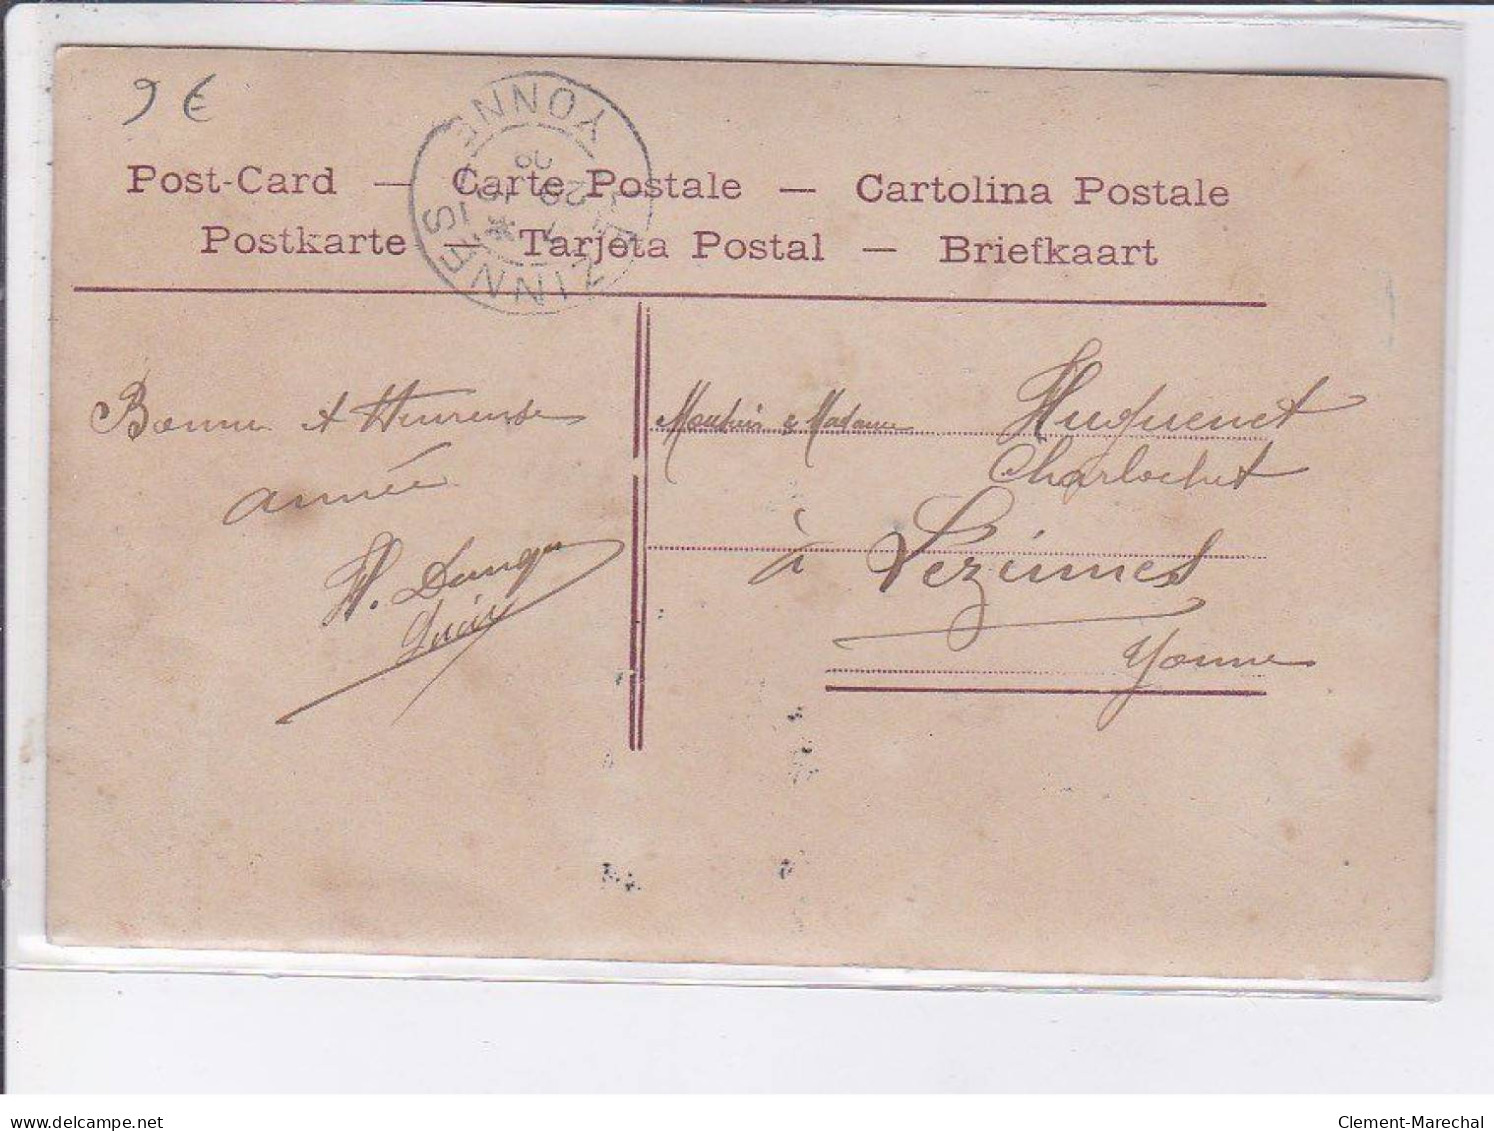 9 €
Post-Card — Carte Postale — Cartolina Postale
Postkarte — Tarjeta Postal — Briefkaart
LEZINNES
YONNE
Bonne et Heureuse
année
Monsieur & Madame Huguenet
à Lezinnes
Yonne
delcampe.net
Clement-Marechal